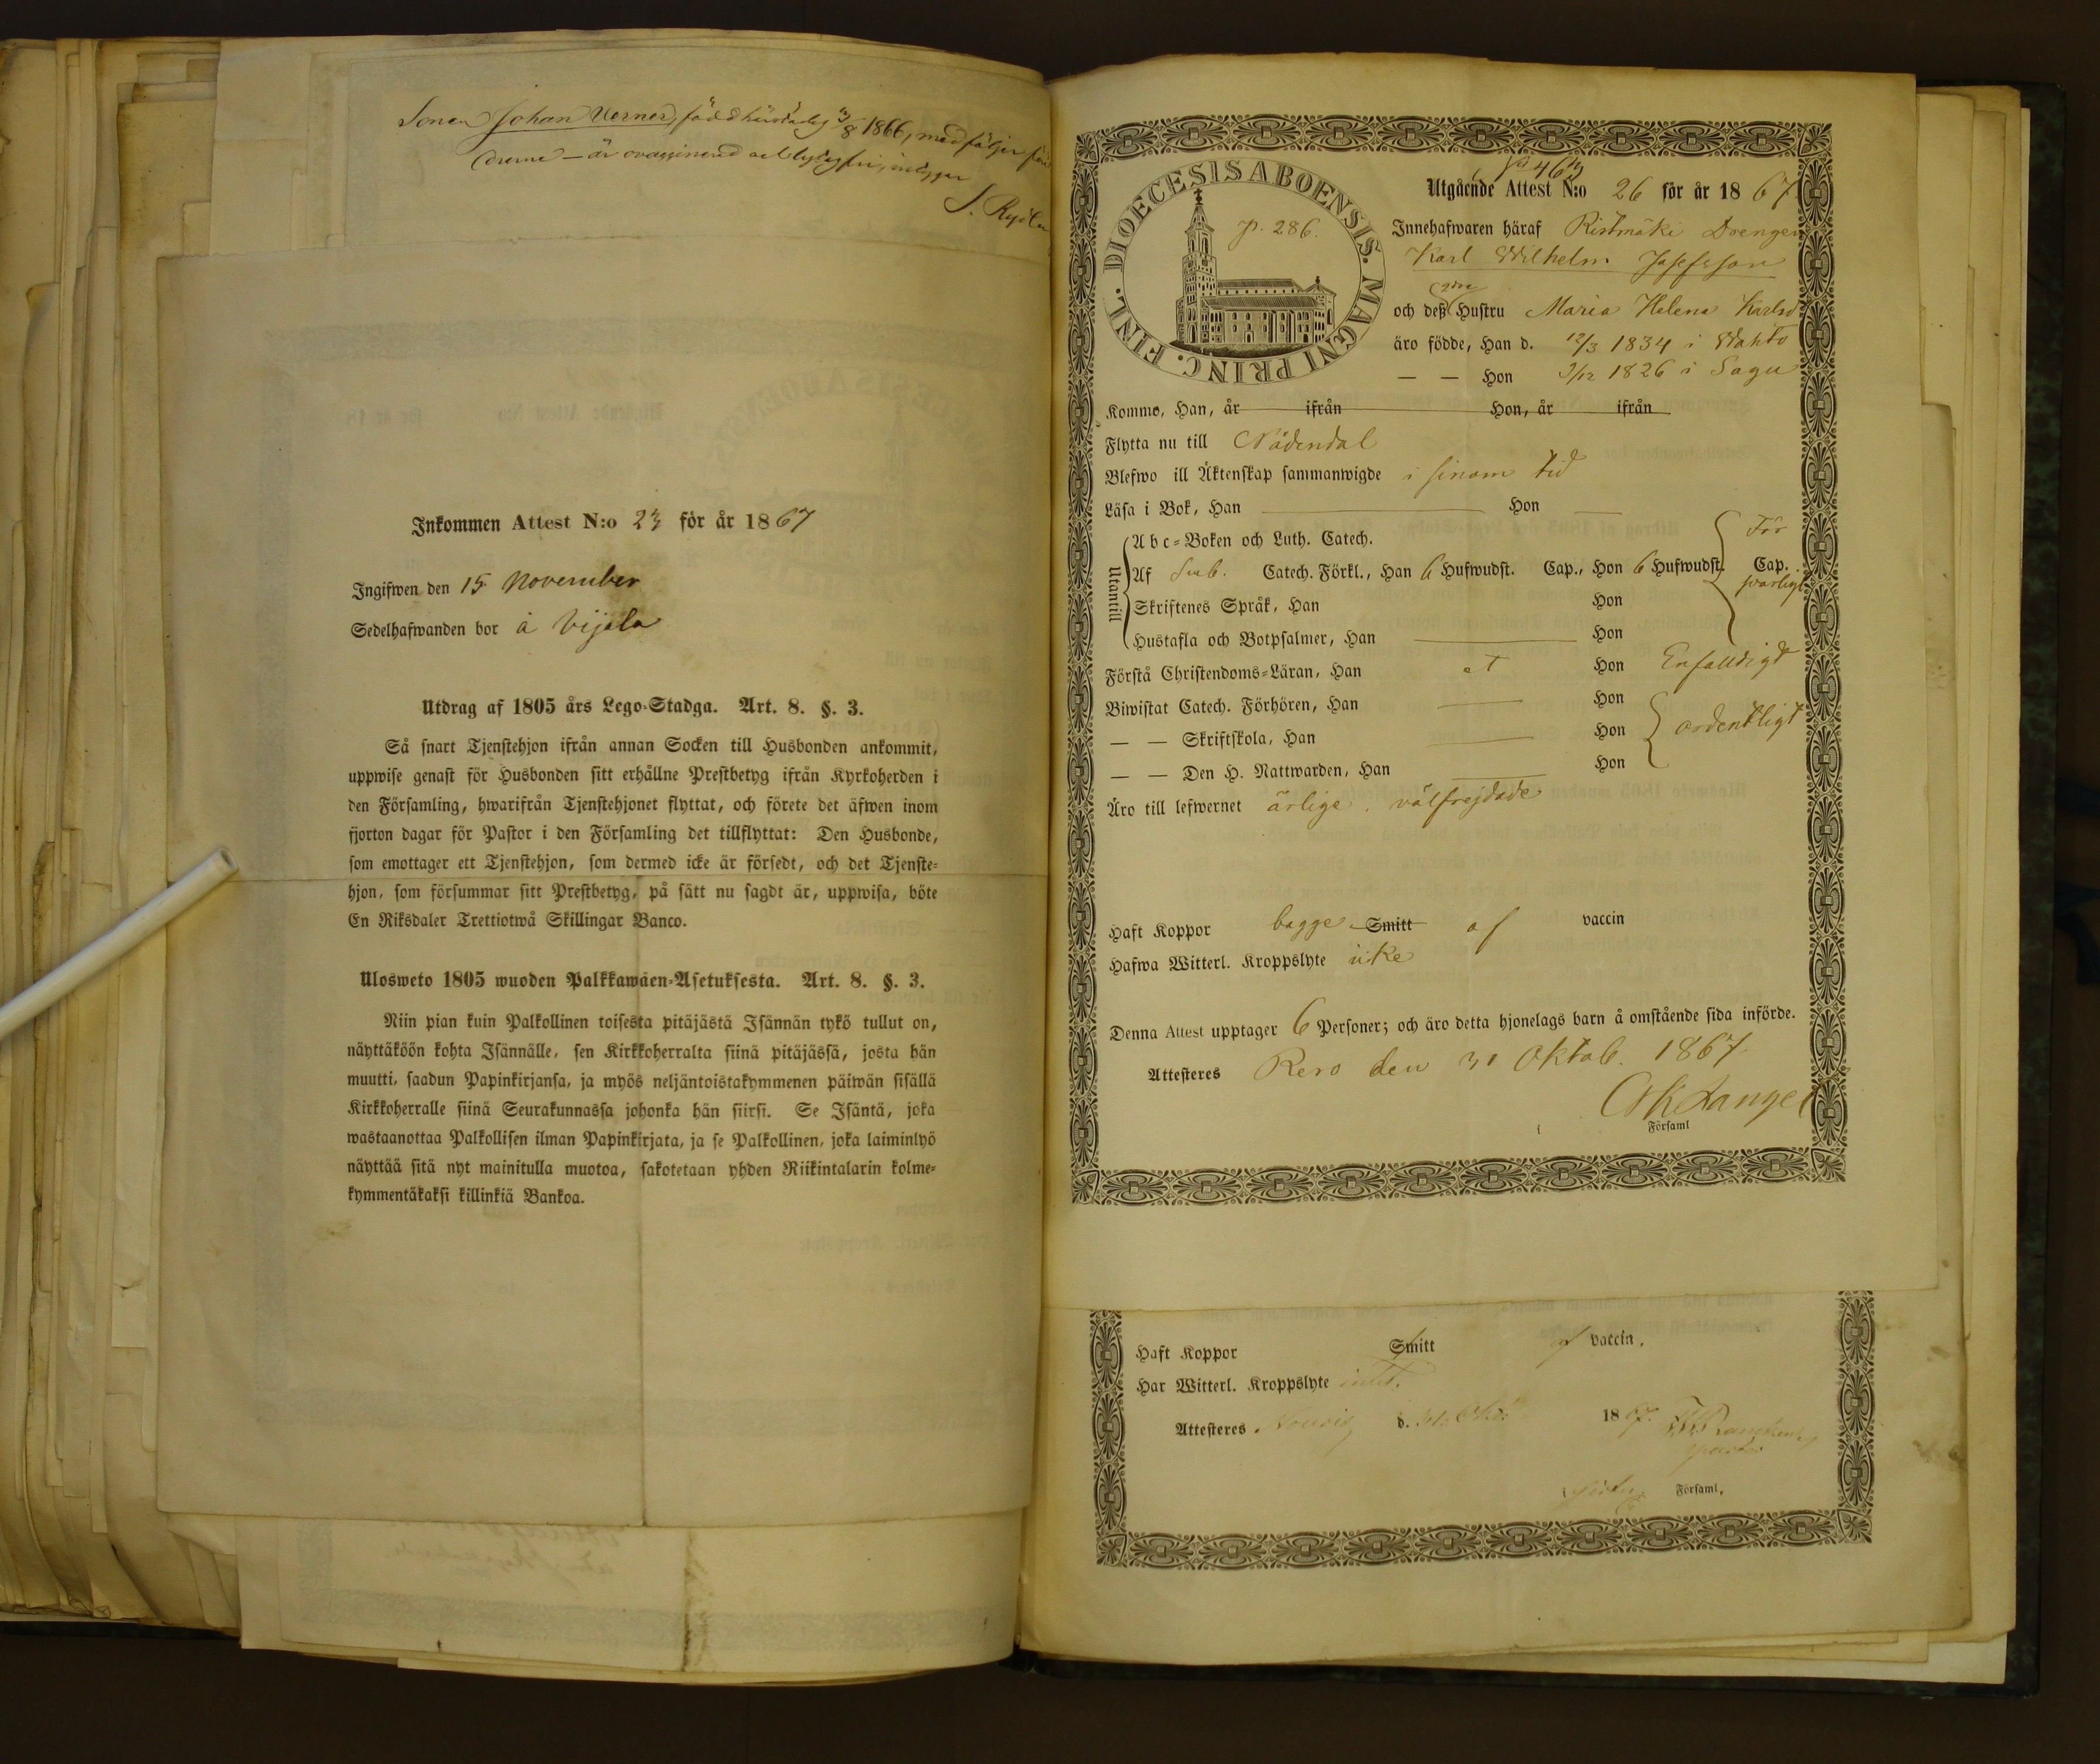 Sonen Johan Verner, född härstädes 3/8 1866, medföljer för
 är ovaccinerad och lytesfri, intygar
S.
Inkommen Attest N:o 23 för år 1867
Ingifwen den 15 November
Sedelhafwanden bor å Vijala
Utdrag af 1805 års Lego-Stadga. Art. 8. §. 3.
Så snart Tjenstehjon ifrån annan Socken till Husbonden ankommit,
uppwise genast för Husbonden sitt erhållne Prestbetyg ifrån Kyrkoherden i
den Församling, hwarifrån Tjenstehjonet flyttat, och förete det äfwen inom
fjorton dagar för Pastor i den Församling det tillflyttat: Den Husbonde,
som emottager ett Tjenstehjon, som dermed icke är försedt, och det Tjenste-
hjon, som försummar sitt Prestbetyg, på sätt nu sagdt är, uppwisa, böte
En Riksdaler Trettiotwå Skillingar Banco.
Ulosweto 1805 wuoden Palkkawäen-Asetuksesta. Art. 8. §. 3.
Niin pian kuin Palkollinen toisesta pitäjästä Isännän tykö tullut on,
näyttäköön kohta Isännälle, sen Kirkkoherralta siinä pitäjässä, josta hän
muutti, saadun Papinkirjansa, ja myös neljäntoistakymmenen päiwän sisällä
Kirkkoherralle siinä Seurakunnassa johonka hän siirsi. Se Isäntä, joka
wastaanottaa Palkollisen ilman Papinkirjata, ja se Palkollinen, joka laiminlyö
näyttää sitä nyt mainitulla muotoa, sakotetaan yhden Riikintalarin kolme-
kymmentäkaksi killinkiä Bankoa.
DIOECESIS ABOENSIS. MAGNI PRINC. FINL.
p. 286.
Utgående Attest N:o 26 för år 1867
Innehafwaren häraf Ristmäki Drengen
Karl Wilhelm Josefsson
och deß Hustru Maria Helena Karlsd
äro födde, Han d. 12/3 1834 i Wahto
— — Hon 3/12 1826 i Sagu
Kommo, Han, år ifrån Hon, år ifrån
Flytta nu till Nådendal
Blefwo ill Äktenskap sammanwigde i sinom tid
Läsa i Bok, Han Hon
Utantill
Abc-Boken och Luth. Catech. För
Af Sveb. Catech. Förkl., Han 6 Hufwudst. Cap., Hon 6 Hufwudst. Cap.
swarligt
Skriftenes Språk, Han Hon
Hustafla och Botpsalmer, Han Hon
Förstå Christendoms-Läran, Han et Hon Enfalldigt
Biwistat Catech. Förhören, Han Hon
— — Skriftskola, Han Hon ordentligt
— — Den H. Nattwarden, Han Hon
Äro till lefwernet ärlige, välfrejdade
Haft Koppor begge Smitt af vaccin
Hafwa Witterl. Kroppslyte icke
Denna Attest upptager 6 Personer; och äro detta hjonelags barn å omstående sida införde.
Attesteres Reso den 31 Oktob. 1867.
Lange
Församl
Haft Koppor Smitt af vaccin.
Har Witterl. Kroppslyte intet.
Attesteres d. 1867.
Församl.